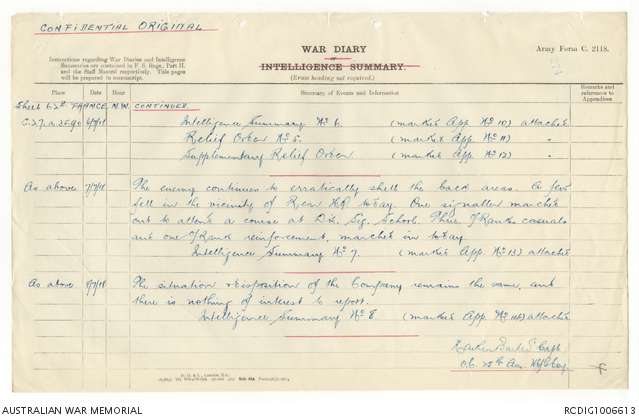 CONFIDENTIAL ORIGINAL
WAR DIARY
OF
INTELLIGENCE SUMMARY.
(Erase heading not required.)
Army Form C. 2118.
Instructions regarding War Diaries and Intelligence
Summaries are contained in F. S. Regs., Part II.
and the Staff Manual respectively. Title pages
will be prepared in manuscript.
Place Date Hour Summary of Events and Information Remarks and references to Appendices
Sheet 62D FRANCE N.W. CONTINUED
C.27.a.35.90 6/7/18 Intelligence Summary No 6. (marked App. No 10) attached
Relief Order No 5. (marked App. No 11) "
Supplementary Relief Order (marked App. No 12) "
As above 7/7/18 The enemy continues to erratically shell the back areas. A few
fell in the vicinity of Rear HQ today. One signaller marched
out to attend a course at Sig. School. Three O/Ranks casuals
and one O/Rank reinforcement, marched in today.
Intelligence Summary No 7. (marked App. No 13) attached
As above 8/7/18 The situation & disposition of the Company remains the same, and
there is nothing of interest to report.
Intelligence Summary No 8 (marked App. No 14) attached
Capt
O.C. 25th Aus.
AUSTRALIAN WAR MEMORIAL
RCDIG1006613